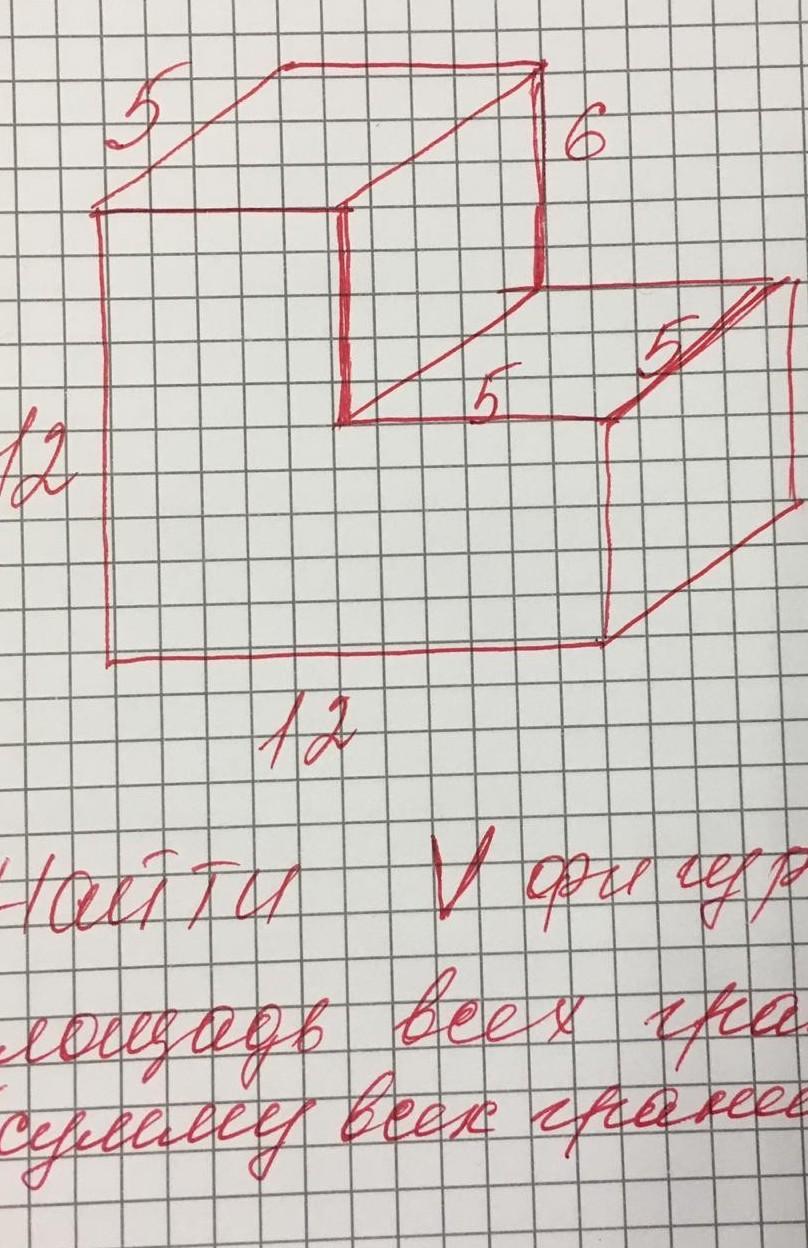 5
6
5
5
12
12
Найти V фигур
лощадь всех гра
сумму всех граней